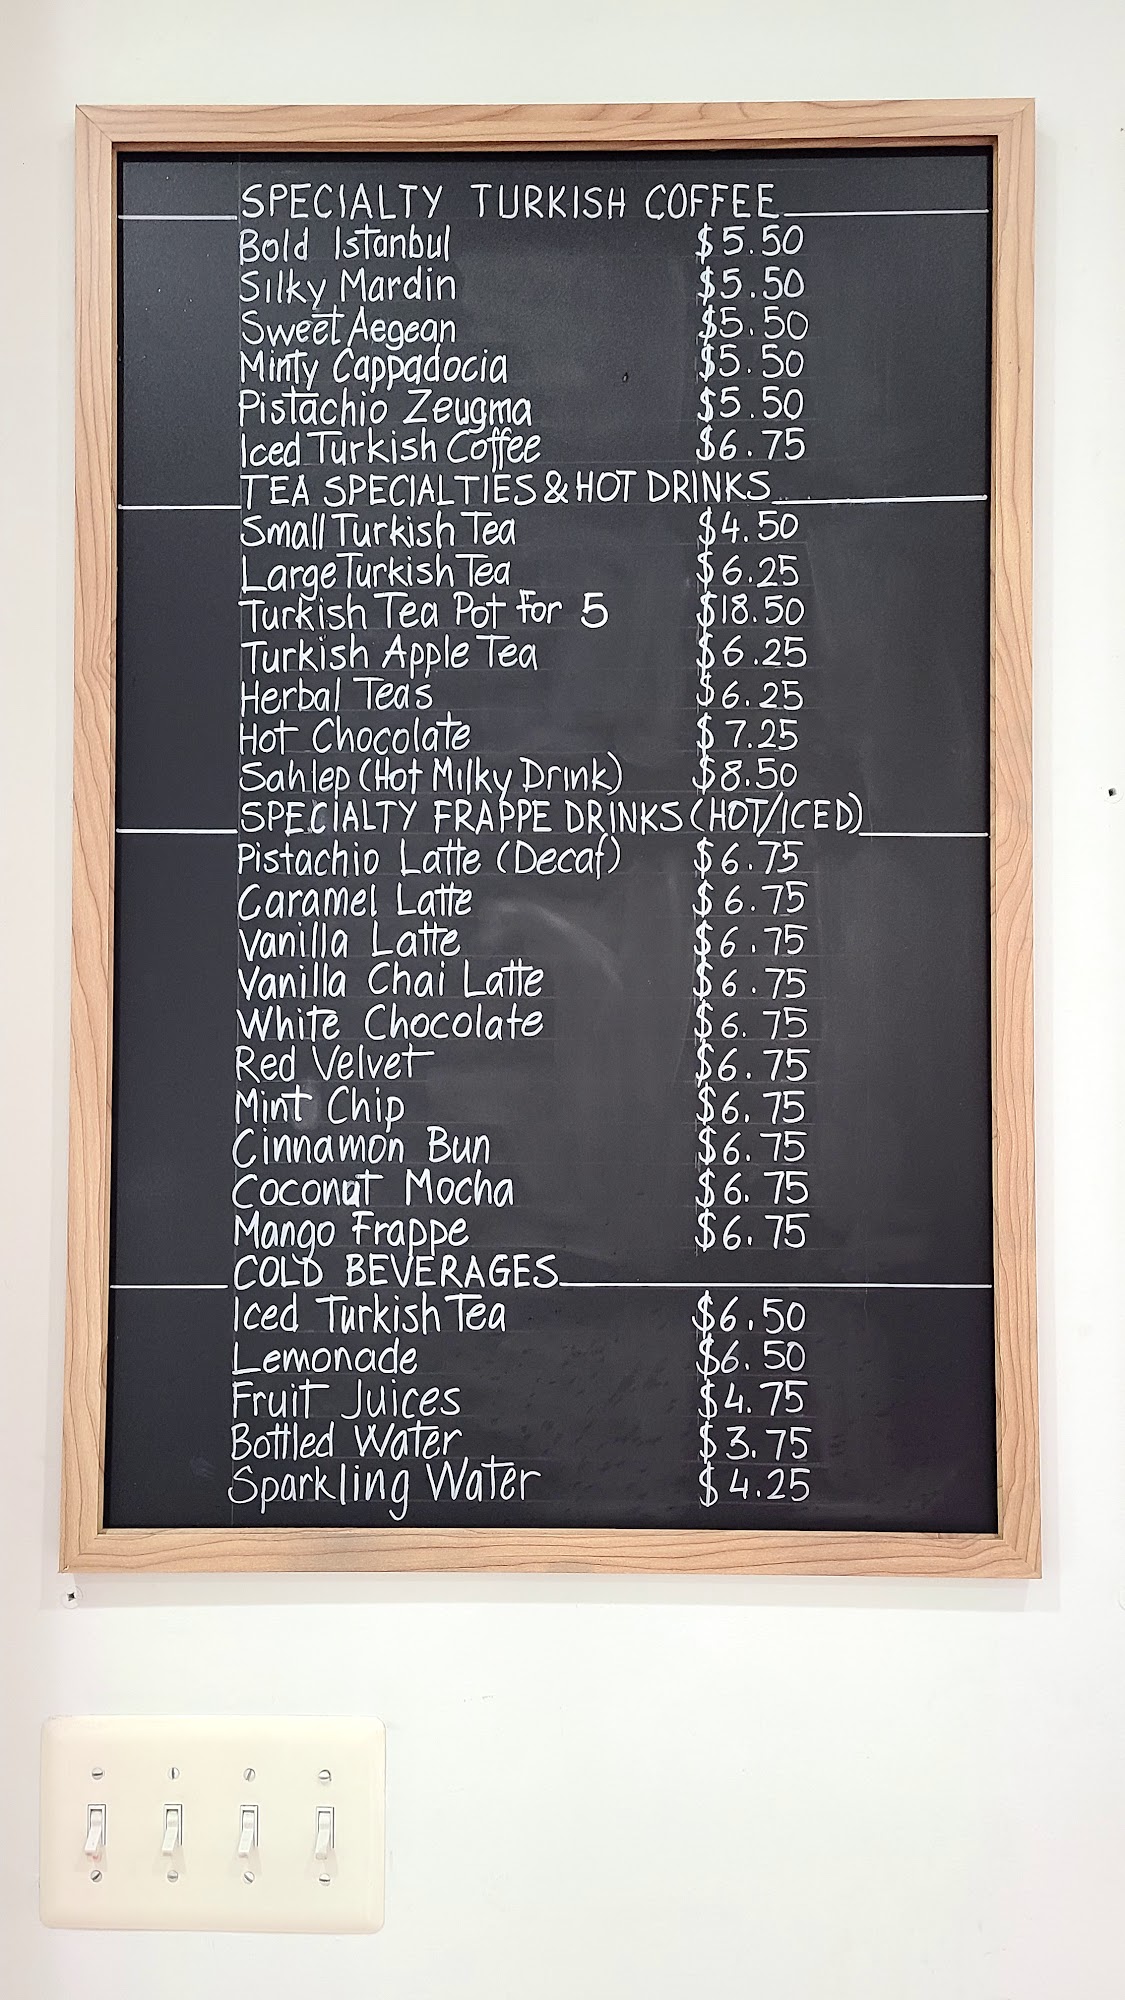 SPECIALTY TURKISH COFFEE
Bold Istanbul $5.50
Silky Mardin $5.50
Sweet Aegean $5.50
Minty Cappadocia $5.50
Pistachio Zeugma $5.50
Iced Turkish Coffee $6.75
TEA SPECIALTIES & HOT DRINKS
Small Turkish Tea $4.50
Large Turkish Tea $6.25
Turkish Tea Pot For 5 $18.50
Turkish Apple Tea $6.25
Herbal Teas $6.25
Hot Chocolate $7.25
Sahlep (Hot Milky Drink) $8.50
SPECIALTY FRAPPE DRINKS (HOT/ICED)
Pistachio Latte (Decaf) $6.75
Caramel Latte $6.75
Vanilla Latte $6.75
Vanilla Chai Latte $6.75
White Chocolate $6.75
Red Velvet $6.75
Mint Chip $6.75
Cinnamon Bun $6.75
Coconut Mocha $6.75
Mango Frappe $6.75
COLD BEVERAGES
Iced Turkish Tea $6.50
Lemonade $6.50
Fruit Juices $4.75
Bottled Water $3.75
Sparkling Water $4.25